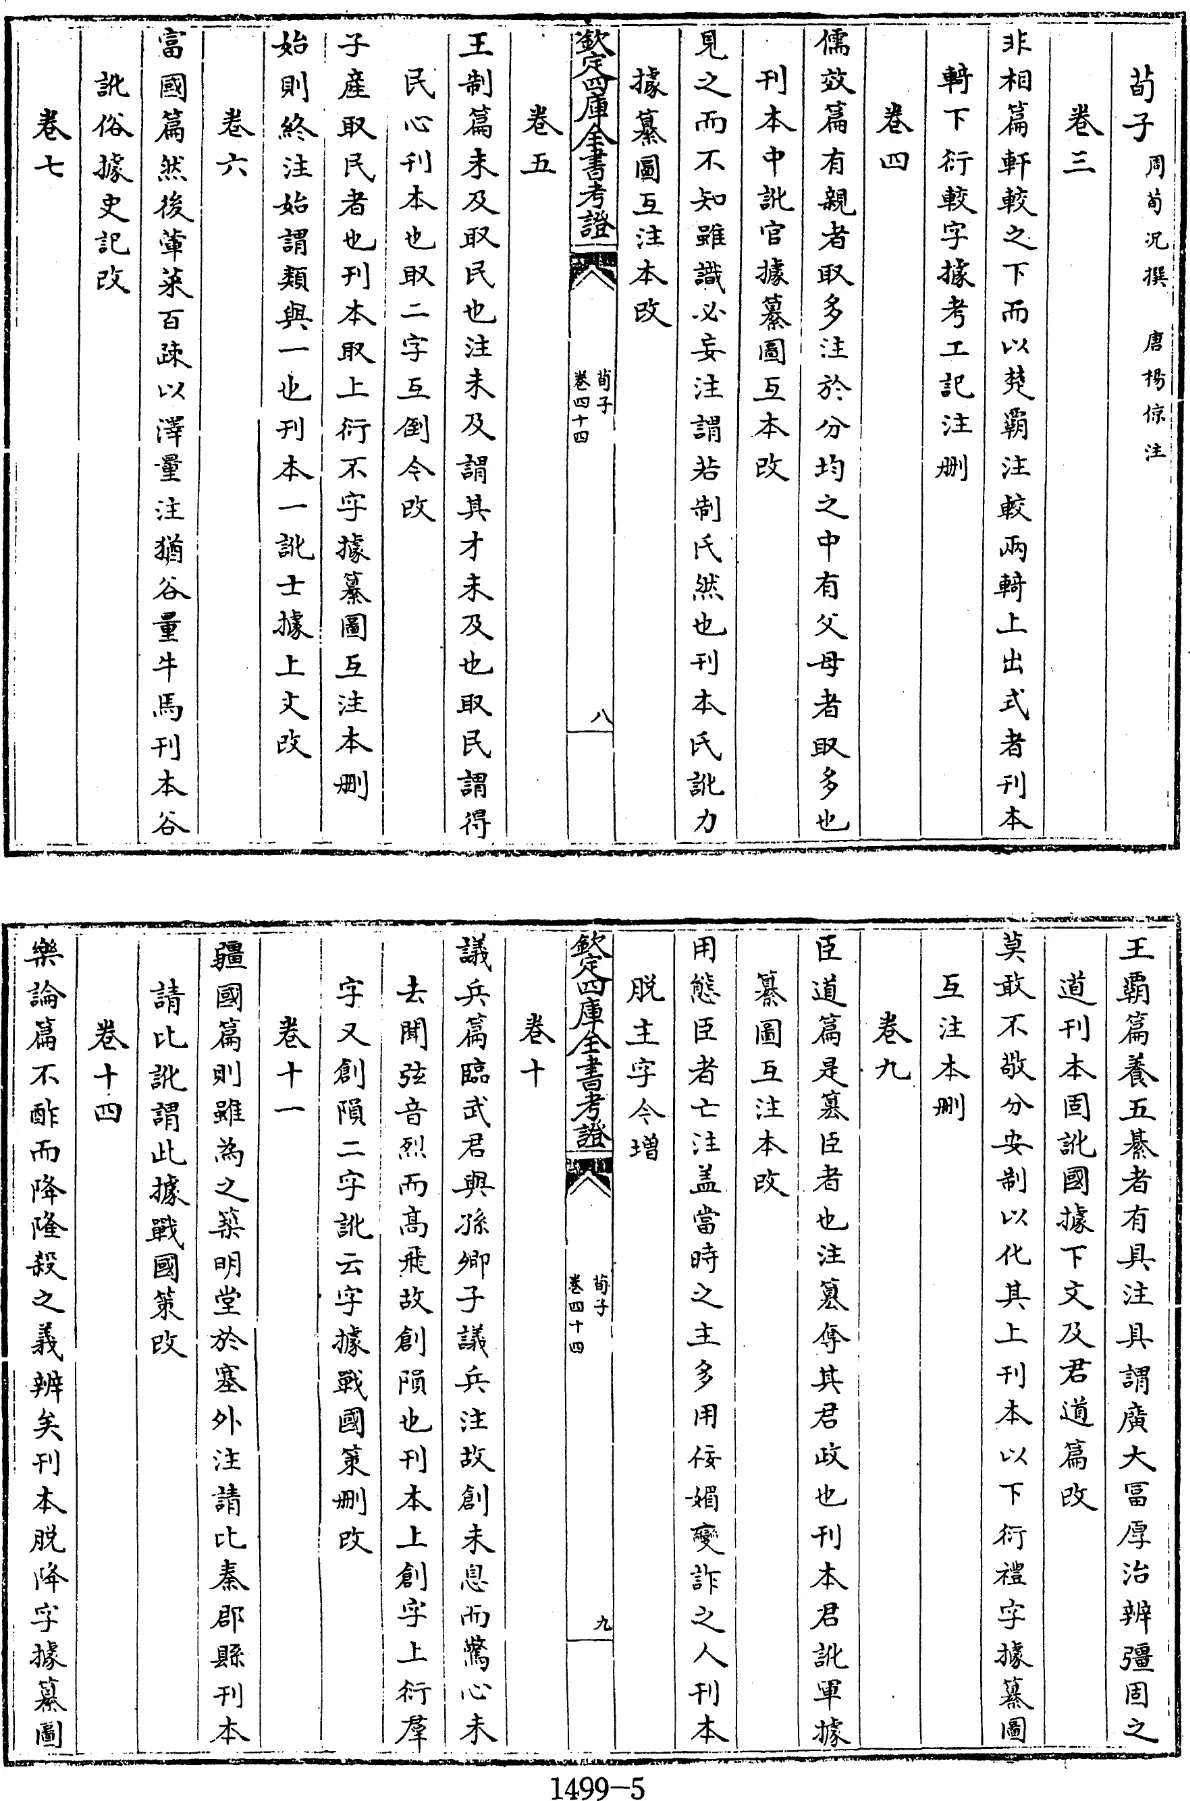 荀子 周荀况撰 唐楊倞注
卷三
非相篇軒較之下而以楚霸注較兩輢上出式者刊本
輢下衍較字據考工記注刪
卷四
儒效篇有親者取多注於分均之中有父母者取多也
刊本中訛官據纂圖互本改
見之而不知雖識必妄注謂若制氏然也刊本氏訛力
據纂圖互注本改
欽定四庫全書考證
荀子
卷四十四
八
卷五
王制篇未及取民也注未及謂其才未及也取民謂得
民心刊本也取二字互倒今改
子産取民者也刊本取上衍不字據纂圖互注本刪
始則終注始謂類與一也刊本一訛士據上文改
卷六
富國篇然後葷菜百疏以澤量注猶谷量牛馬刊本谷
訛俗據史記改
卷七
王霸篇養五綦者有具注具謂廣大富厚治辨彊固之
道刊本固訛國據下文及君道篇改
莫敢不敬分安制以化其上刊本以下衍禮字據纂圖
互注本刪
卷九
臣道篇是篡臣者也注篡奪其君政也刊本君訛軍據
纂圖互注本改
用態臣者亡注蓋當時之主多用佞媚變詐之人刊本
脱主字今增
欽定四庫全書考證
荀子
卷四十四
九
卷十
議兵篇臨武君與孫卿子議兵注故創未息而驚心未
去聞弦音烈而高飛故創隕也刊本上創字上衍羣
字又創隕二字訛云字據戰國策刪改
卷十一
疆國篇則雖為之築明堂於塞外注請比秦郡縣刊本
請比訛謂此據戰國策改
卷十四
樂論篇不酢而降隆殺之義辨矣刊本脱降字據纂圖
1499-5